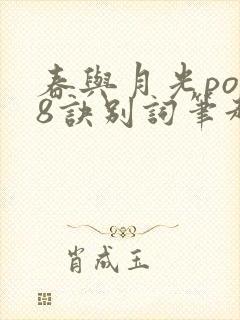 春與月光po1
8訣別詞筆福
肖成玉